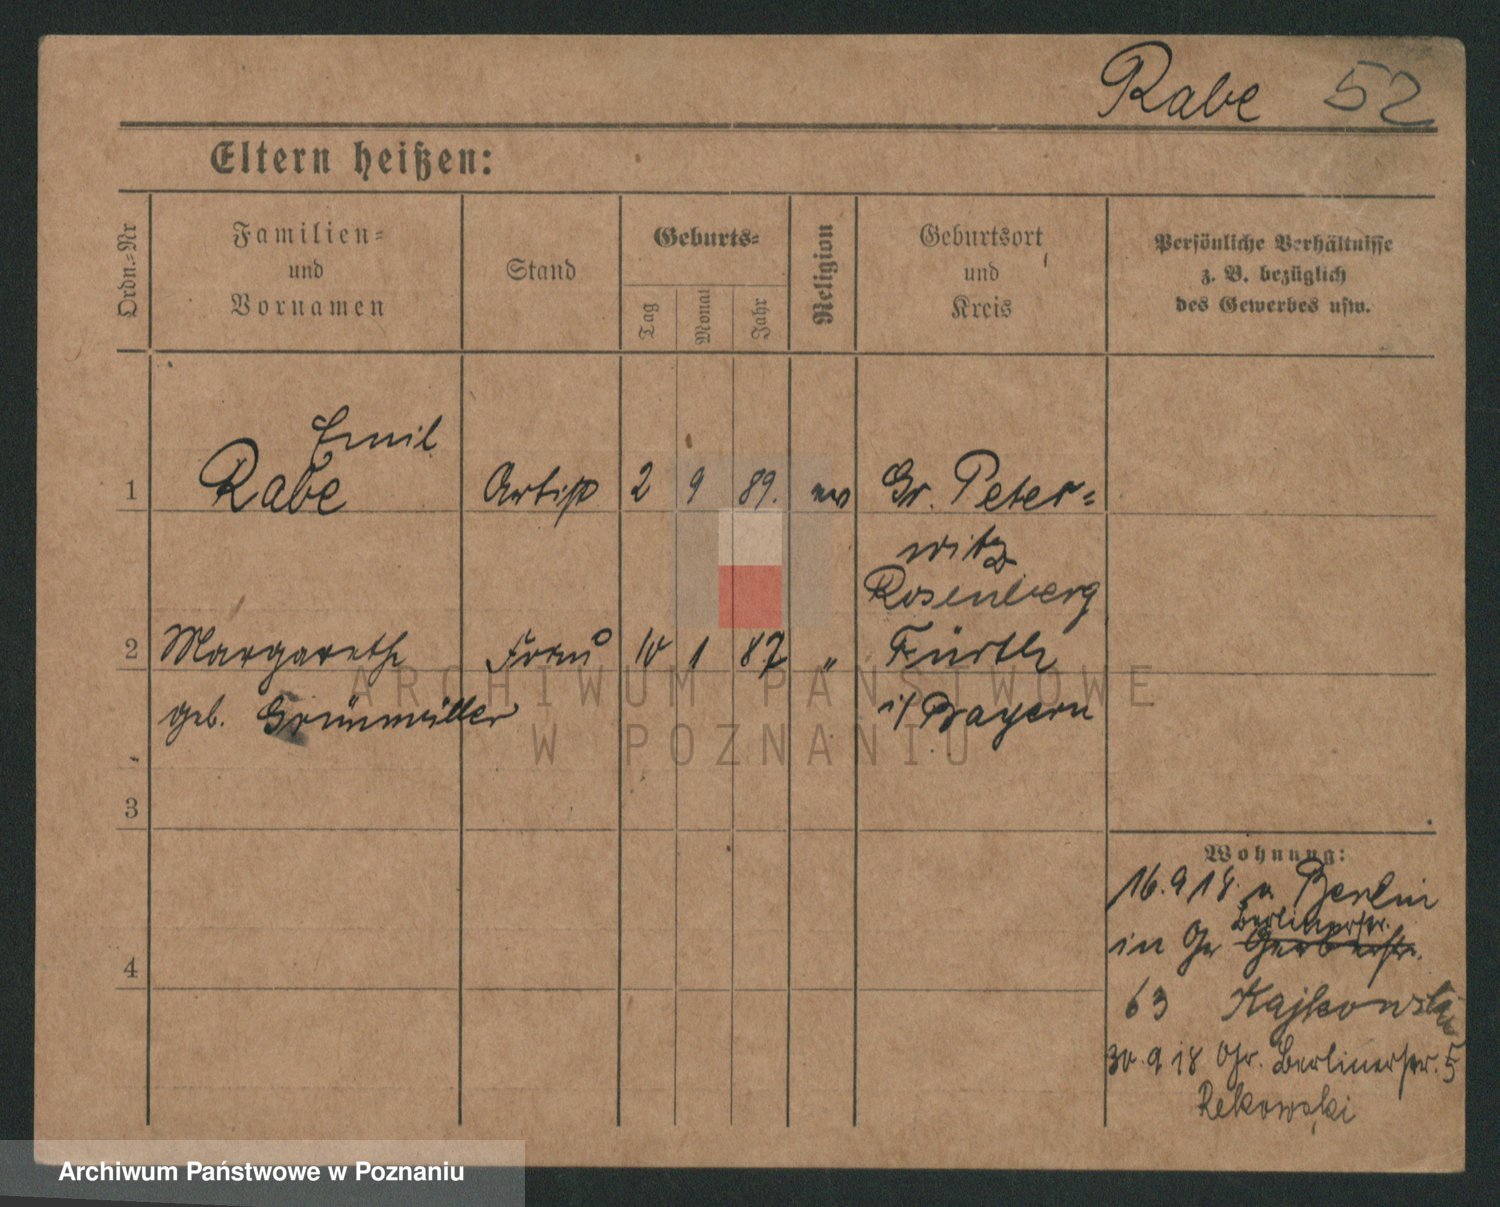 Rabe 52
Eltern heißen:
Ordn.=Nr
Familien=
und
Vornamen
Stand
Geburts=
Tag
Monat
Jahr
Religion
Geburtsort
und
Kreis
Persönliche Verhältnisse
z. B. bezüglich
des Gewerbes usw.
Emil
1 Rabe Artist 2 9 89. ev Gr. Peter=
witz
Rosenberg
2 Margarethe Frau 10 1 87 " Fürth
geb. Grünmüller i/ Bayern
3
4
Wohnung:
16.9 18. v. Berlin
Berlinerstr.
in Gerberstr.
63
30.9 18 Berlinerstr. 5
Rekowski
ARCHIWUM PAŃSTWOWE
W POZNANIU
Archiwum Państwowe w Poznaniu